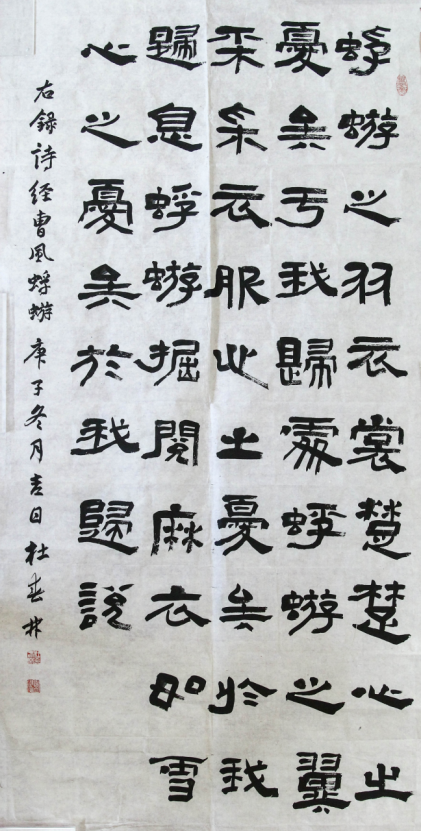 蜉蝣之羽衣裳楚楚心之
憂矣于我歸處蜉蝣之翼
采采衣服心之憂矣於我
歸息蜉蝣掘閱麻衣如雪
心之憂矣於我歸說
右錄詩經曹風蜉蝣庚子冬月吉日杜春林